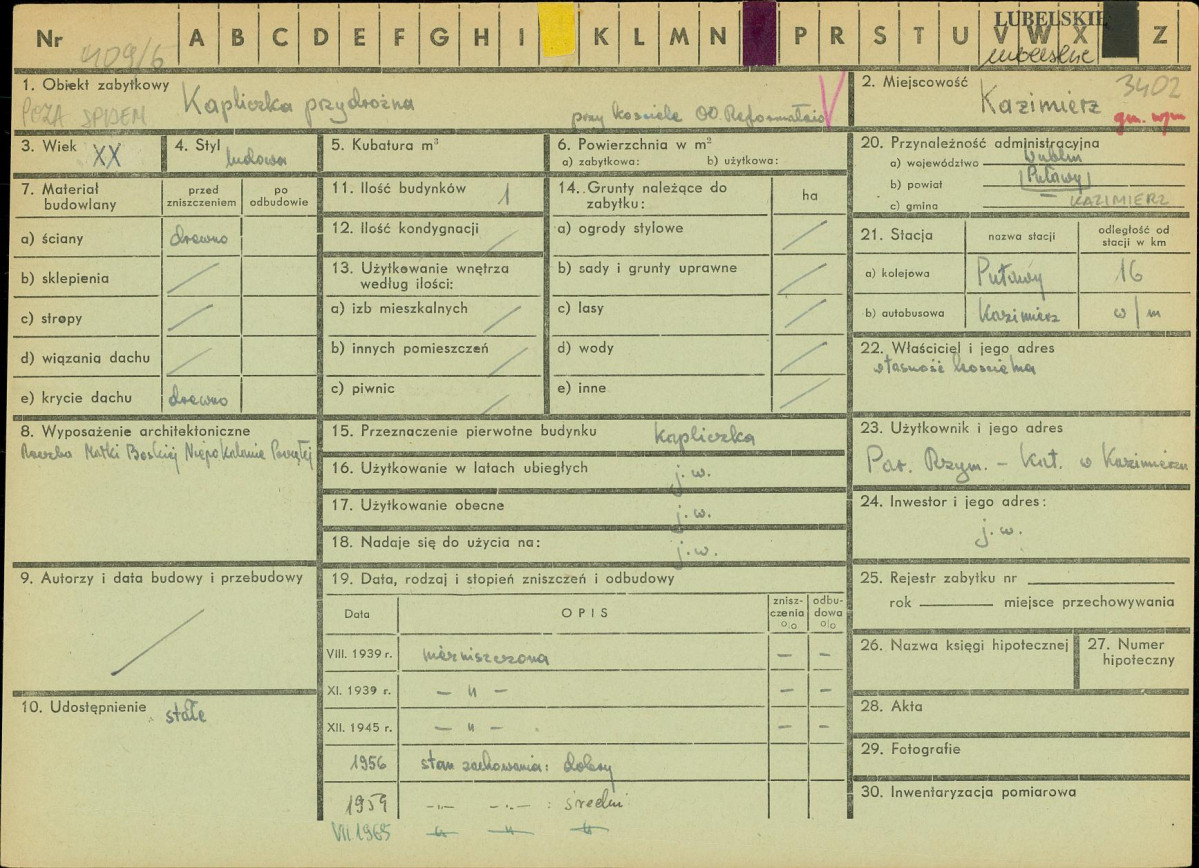 Nr 409/6 A B C D E F G H I K L M N P R S T U V W X Z
LUBELSKIE
lubelskie
1. Obiekt zabytkowy Kapliczka przydrożna
POZA SPISEM
przy kościele OO. Reformatów
2. Miejscowość Kazimierz 3402
gm. wym
3. Wiek XX
4. Styl ludowa
5. Kubatura m³
6. Powierzchnia w m²
a) zabytkowa: b) użytkowa:
20. Przynależność administracyjna
a) województwo Lublin
b) powiat Puławy
c) gmina — KAZIMIERZ
7. Materiał budowlany
przed zniszczeniem
po odbudowie
a) ściany drewno
b) sklepienia
c) stropy
d) wiązania dachu
e) krycie dachu drewno
11. Ilość budynków 1
12. Ilość kondygnacji
13. Użytkowanie wnętrza
według ilości:
a) izb mieszkalnych
b) innych pomieszczeń
c) piwnic
14. Grunty należące do
zabytku:
ha
a) ogrody stylowe
b) sady i grunty uprawne
c) lasy
d) wody
e) inne
21. Stacja
nazwa stacji
odległość od
stacji w km
a) kolejowa Puławy 16
b) autobusowa Kazimierz w/m
22. Właściciel i jego adres
własność kościelna
8. Wyposażenie architektoniczne
Rzeźba Matki Boskiej Niepokalanie Poczętej
15. Przeznaczenie pierwotne budynku kapliczka
16. Użytkowanie w latach ubiegłych j.w.
17. Użytkowanie obecne j.w.
18. Nadaje się do użycia na: j.w.
23. Użytkownik i jego adres
Par. Rzym. – Kat. w Kazimierzu
24. Inwestor i jego adres:
j.w.
9. Autorzy i data budowy i przebudowy
10. Udostępnienie stałe
19. Data, rodzaj i stopień zniszczeń i odbudowy
Data
OPIS
znisz-
czenia
%
odbu-
dowa
%
VIII. 1939 r. niezniszczona – –
XI. 1939 r. – " – – –
XII. 1945 r. – " – – –
1956 stan zachowania: dobry
1959 –"– –"– : średni
VII 1965 –"– –"– –"–
25. Rejestr zabytku nr
rok miejsce przechowywania
26. Nazwa księgi hipotecznej
27. Numer
hipoteczny
28. Akta
29. Fotografie
30. Inwentaryzacja pomiarowa